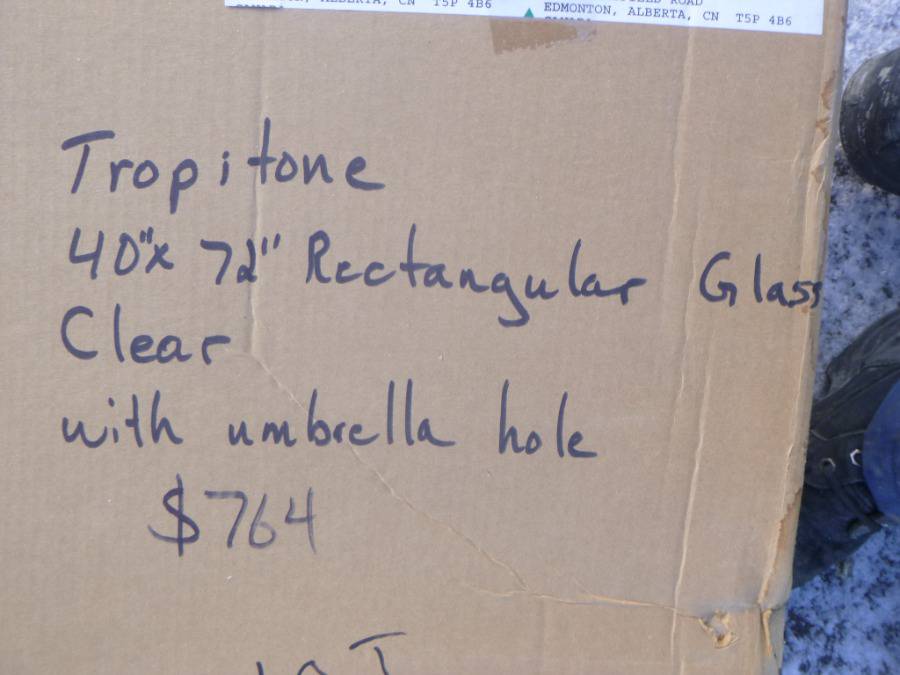 ALBERTA, CN T5P 4B6
ROAD
EDMONTON, ALBERTA, CN T5P 4B6
Tropitone
40"x 72" Rectangular Glass
Clear
with umbrella hole
$764